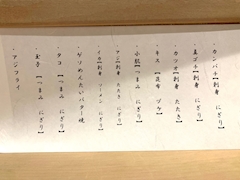 ・カンパチ【刺身 にぎり】
・真ゴチ【刺身 にぎり】
・カツオ【刺身 たたき】
・キス【昆布 ヅケ】
・小肌【つまみ にぎり】
・アジ【刺身 たたき にぎり】
・イカ【刺身 ソーメン にぎり】
・ゲソめんたいバター焼
・タコ【つまみ にぎり】
・玉子【つまみ にぎり】
・アジフライ